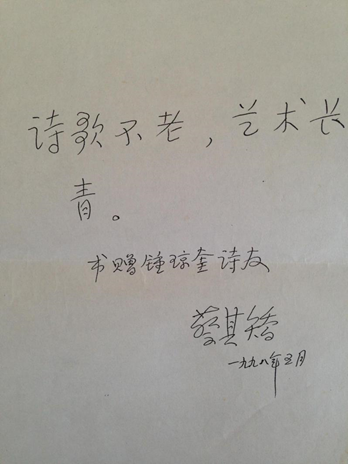 诗歌不老，艺术长
青。
书赠钟琼奎诗友
蔡其矫
一九九八年五月